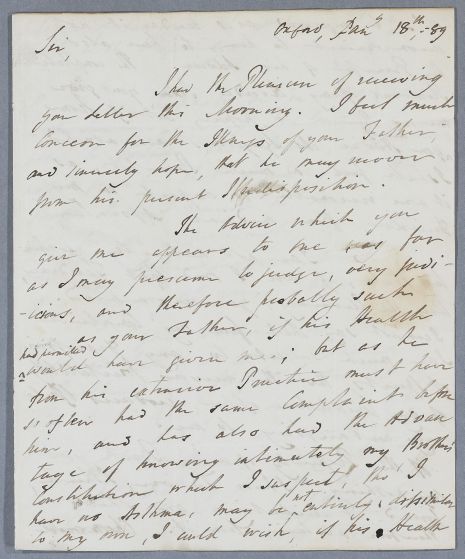 Oxford, Jany 18th -89
Sir,
I had the Pleasure of receiving
your Letter this Morning. I feel much
Concern for the Illness of your Father,
and sincerely hope, that he may recover
from his present Indisposition.
The Advice which you
give me appears to me as far
as I may presume to judge, very judi-
-cious, and therefore probably such
as your Father, if his Health
had permitted
would have given me; but as he
from his extensive Practice must have
so often had the same Complaints before
him, and has also had the Advan
tage of knowing intimately my Brother's
Constitution which I suspect, tho' I
have no Asthma, may be not entirely dissimilar
to my own, I could wish, if his Health